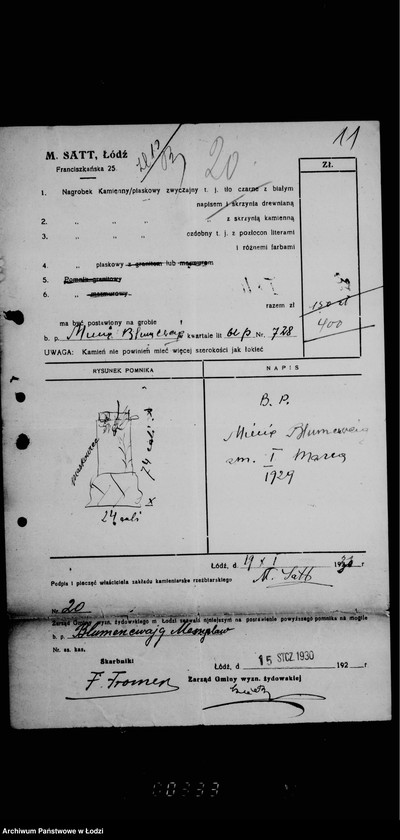 11
20
M. SATT, Łódź
Franciszkańska 25.
Zł.
1. Nagrobek Kamienny/piaskowy zwyczajny t. j. tło czarne z białym
napisem i skrzynia drewnianą
2. „ „ „ z skrzynią kamienną
3. „ „ „ ozdobny t. j. z pozłocon literami
i różnemi farbami
4. „ piaskowy z granitem lub marmurem
5. Pomnik granitowy
6. „ marmurowy
razem zł
400
ma być postawiony na grobie
b. p. kwartale lit Nr. 728
UWAGA: Kamień nie powinień mieć więcej szerokości jak łokieć
RYSUNEK POMNIKA
NAPIS
piaskowiec
74 cali
x
24 cali
B. P.
zm. I Marca
1929
Łódź, d 19 x I 19 r
M. Satt
Podpis i pieczęć właściciela zakładu kamieniarsko rzeźbiarskiego
Nr. 20
Zarząd Gminy wyzn. żydowskiego m Łodzi zezwala niniejszym na postawienie powyższego pomnika na mogile
b. p. Blumencwajg
Nr. as. kas.
Skarbnik:
Łódź, d 15 STCZ. 1930 192 r
F. Fromer
Zarząd Gminy wyzn. żydowskiej
00333
Archiwum Państwowe w Łodzi